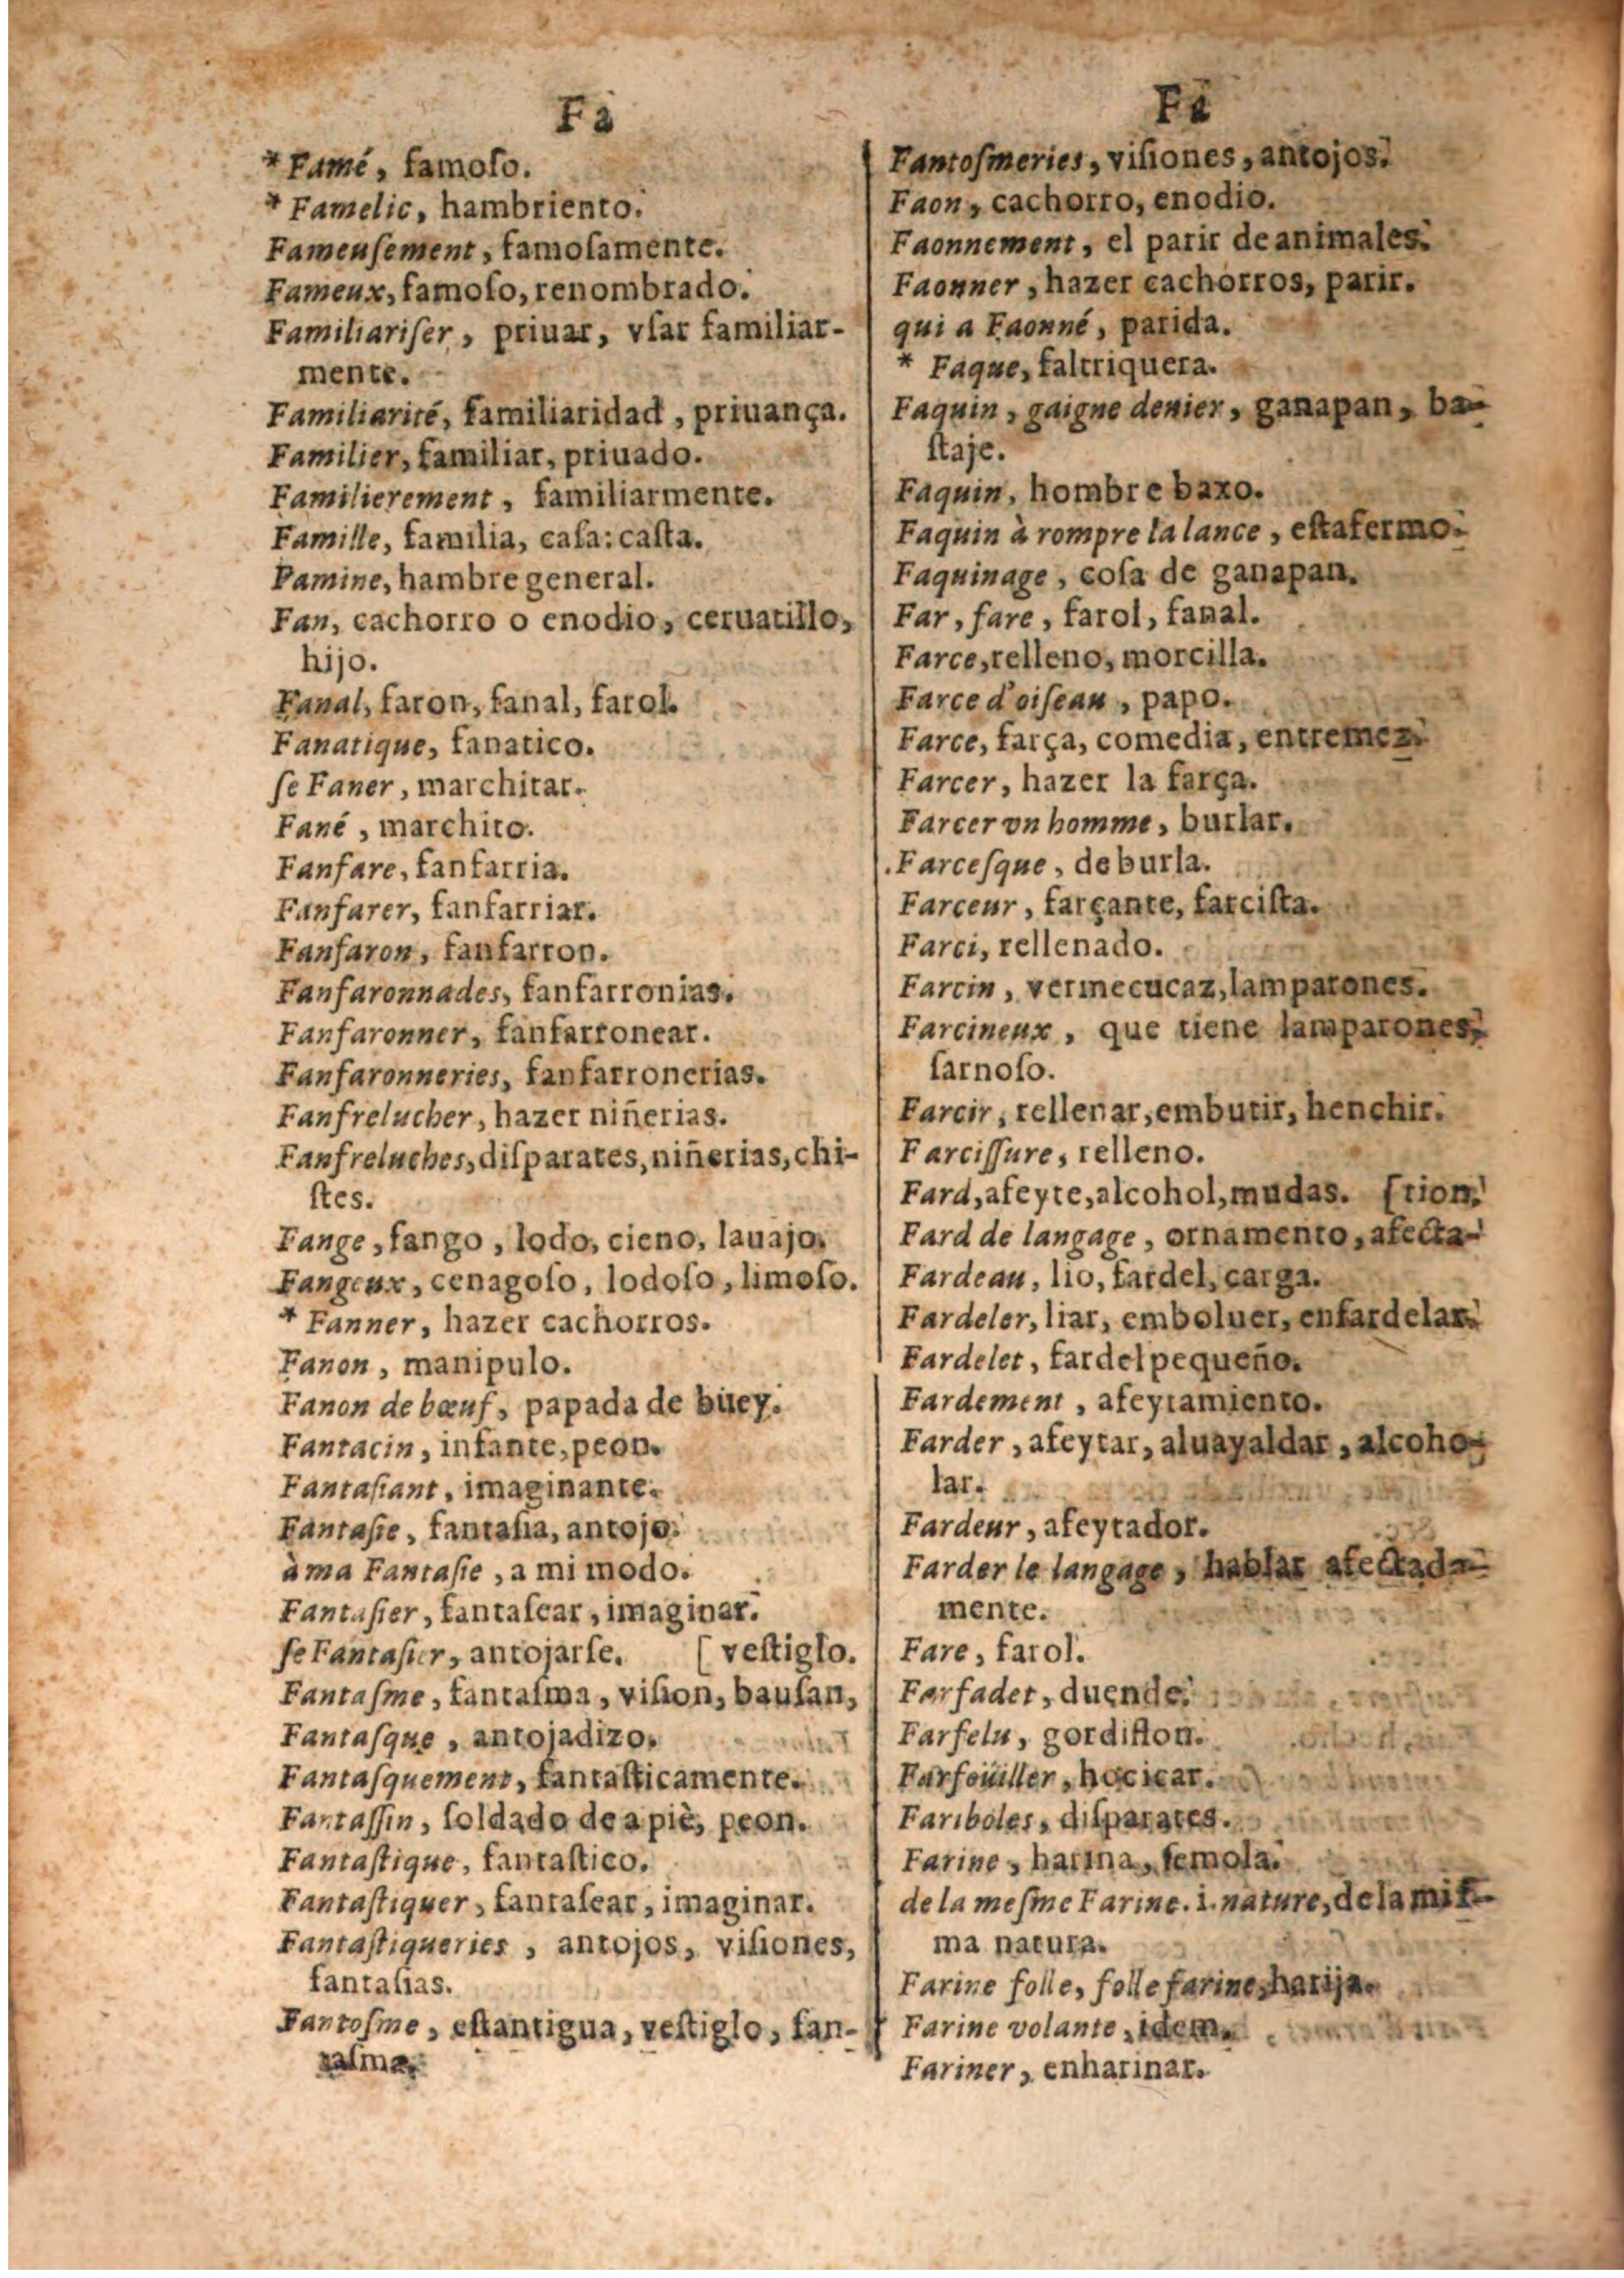 Fa
* Famé, famoſo.
* Famelic, hambriento.
Fameuſement, famoſamente.
Fameux, famoſo, renombrado.
Familiariſer, priuar, vſar familiar-
mente.
Familiarité, familiaridad, priuança.
Familier, familiar, priuado.
Familierement, familiarmente.
Famille, familia, caſa: caſta.
Famine, hambre general.
Fan, cachorro o enodio, ceruatillo,
hijo.
Fanal, faron, fanal, farol.
Fanatique, fanatico.
ſe Faner, marchitar.
Fané, marchito.
Fanfare, fanfarria.
Fanfarer, fanfarriar.
Fanfaron, fanfarron.
Fanfaronnades, fanfarronias.
Fanfaronner, fanfarronear.
Fanfaronneries, fanfarronerias.
Fanfrelucher, hazer niñerias.
Fanfreluches, diſparates, niñerias, chi-
ſtes.
Fange, fango, lodo, cieno, lauajo.
Fangeux, cenagoſo, lodoſo, limoſo.
* Fanner, hazer cachorros.
Fanon, manipulo.
Fanon de bœuf, papada de buey.
Fantacin, infante, peon.
Fantaſiant, imaginante.
Fantaſie, fantaſia, antojo.
à ma Fantaſie, a mi modo.
Fantaſier, fantaſear, imaginar.
ſe Fantaſier, antojarſe. [veſtiglo.
Fantaſme, fantaſma, viſion, bauſan,
Fantaſque, antojadizo.
Fantaſquement, fantaſticamente.
Fantaſſin, ſoldado de a piè, peon.
Fantaſtique, fantaſtico.
Fantaſtiquer, fantaſear, imaginar.
Fantaſtiqueries, antojos, viſiones,
fantaſias.
Fantoſme, eſtantigua, veſtiglo, fan-
taſma.
Fa
Fantoſmeries, viſiones, antojos.
Faon, cachorro, enodio.
Faonnement, el parir de animales.
Faonner, hazer cachorros, parir.
qui a Faonné, parida.
* Faque, faltriquera.
Faquin, gaigne denier, ganapan, ba-
ſtaje.
Faquin, hombre baxo.
Faquin à rompre la lance, eſtafermo.
Faquinage, coſa de ganapan.
Far, fare, farol, fanal.
Farce, relleno, morcilla.
Farce d'oiſeau, papo.
Farce, farça, comedia, entremez.
Farcer, hazer la farça.
Farcer vn homme, burlar.
Farceſque, de burla.
Farceur, farçante, farciſta.
Farci, rellenado.
Farcin, vermecucaz, lamparones.
Farcineux, que tiene lamparones,
ſarnoſo.
Farcir, rellenar, embutir, henchir.
Farciſſure, relleno.
Fard, afeyte, alcohol, mudas. [tion.
Fard de langage, ornamento, afecta-
Fardeau, lio, fardel, carga.
Fardeler, liar, emboluer, enfardelar.
Fardelet, fardel pequeño.
Fardement, afeytamiento.
Farder, afeytar, aluayaldar, alcoho-
lar.
Fardeur, afeytador.
Farder le langage, hablar afectada-
mente.
Fare, farol.
Farfadet, duende.
Farfelu, gordiflon.
Farfoüiller, hocicar.
Fariboles, diſparates.
Farine, harina, ſemola.
de la meſme Farine. i. nature, de la miſ-
ma natura.
Farine folle, folle farine, harija.
Farine volante, idem.
Fariner, enharinar.